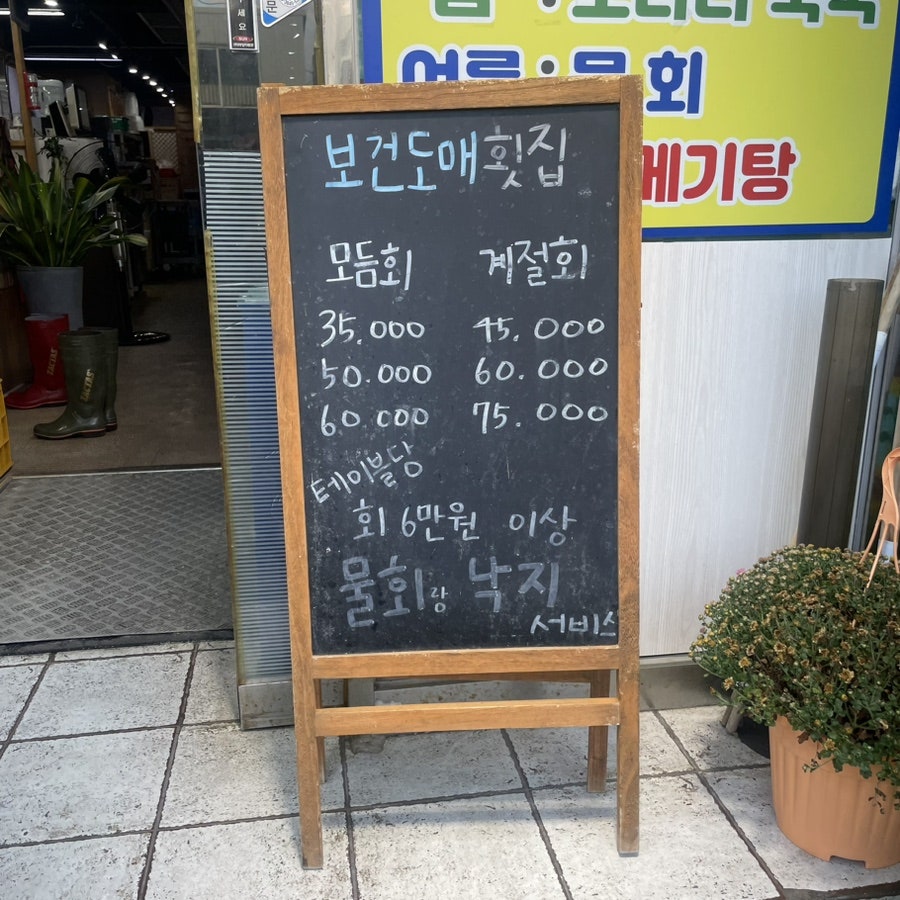 여름 : 물회
메기탕
보건도매횟집
모듬회 계절회
35.000 45.000
50.000 60.000
60.000 75.000
테이블당
회 6만원 이상
물회랑 낙지
서비스